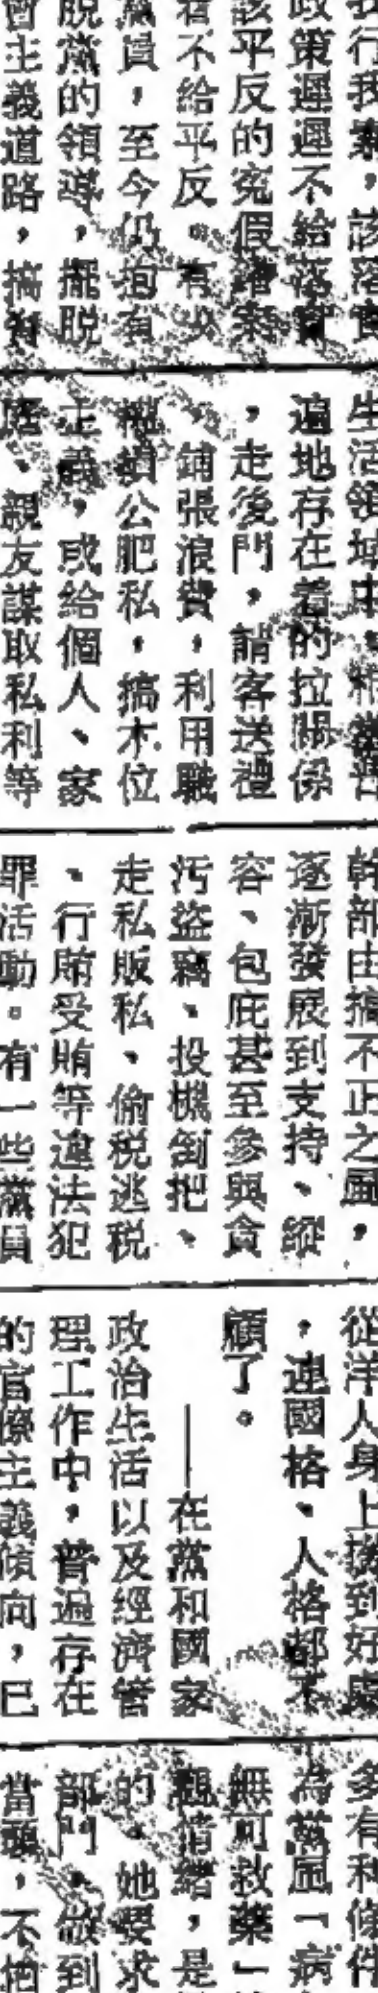 行我素,該落實
政策遲遲不給落實
該平反的冤假錯案
着不給平反。有
黨員,至今仍抱有
脫黨的領導,擺脫
會主義道路,搞
生活領域中,相當普
遍地存在着的拉關係
,走後門,請客送禮
、鋪張浪費,利用職
權損公肥私,搞本位
主義,或給個人、家
庭、親友謀取私利等
幹部由搞不正之風,
逐漸發展到支持、縱
容、包庇甚至參與貪
污盜竊、投機倒把、
走私販私、偷稅逃稅
、行賄受賄等違法犯
罪活動。有一些黨員
從洋人身上撈到好處
,連國格、人格都不
顧了。
——在黨和國家
政治生活以及經濟管
理工作中,普遍存在
的官僚主義傾向,已
多有利條件
為黨風「病
無可救藥」
觀情緒,是
的。她要求
部門,做到
當頭,不怕